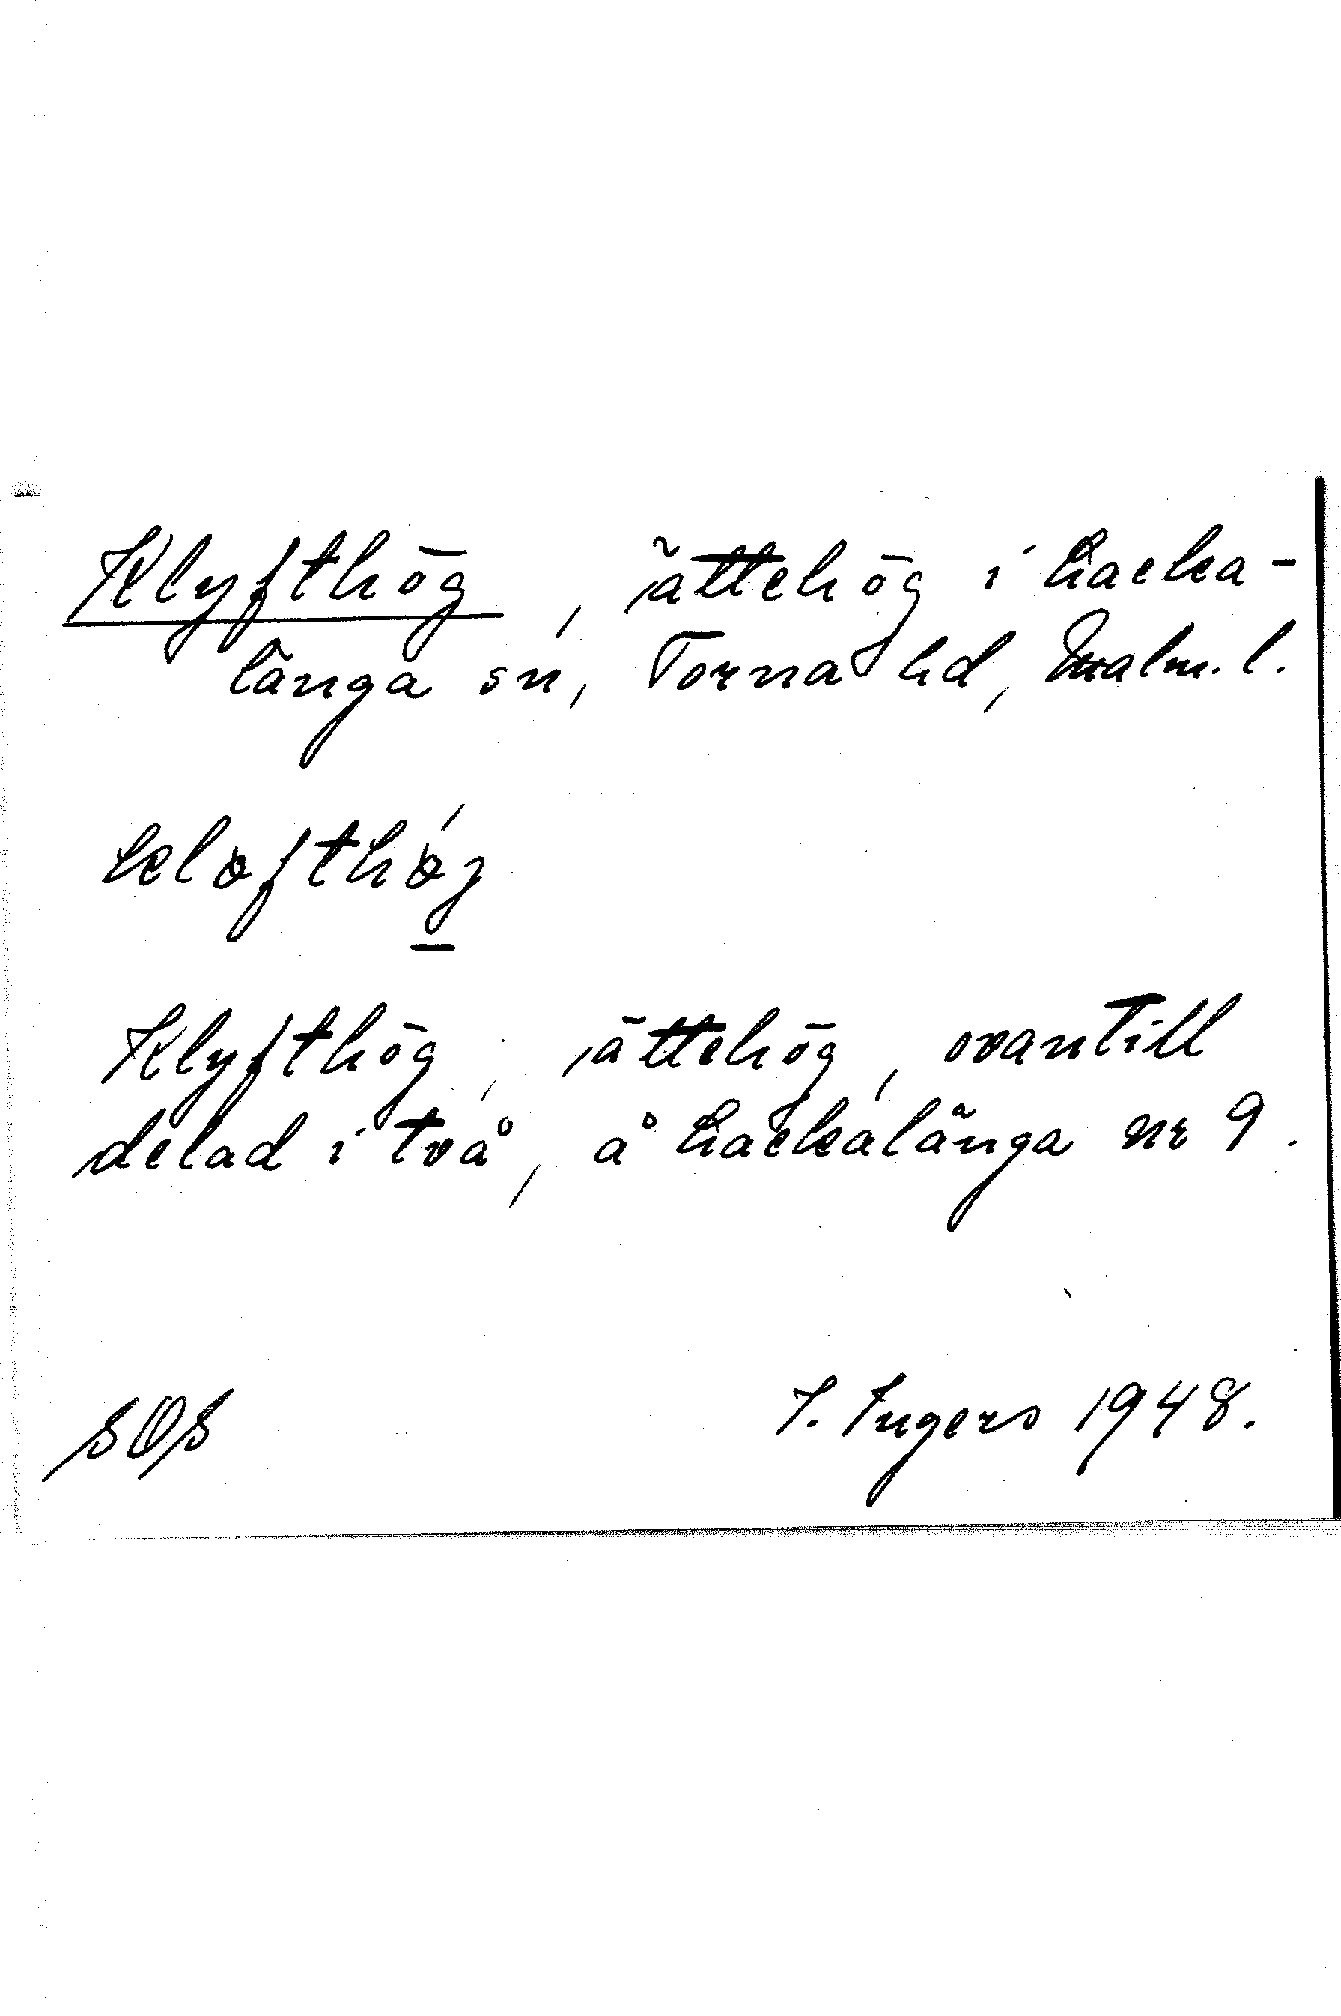 Klyfthög, ättehög i Hacka-
länga sn, Torna hd, Malm. l.
kløfthǿȝ
Klyfthög, ättehög, ovantill
delad i två, å Hackalänga nr 9.
SOS
I. Ingers 1948.